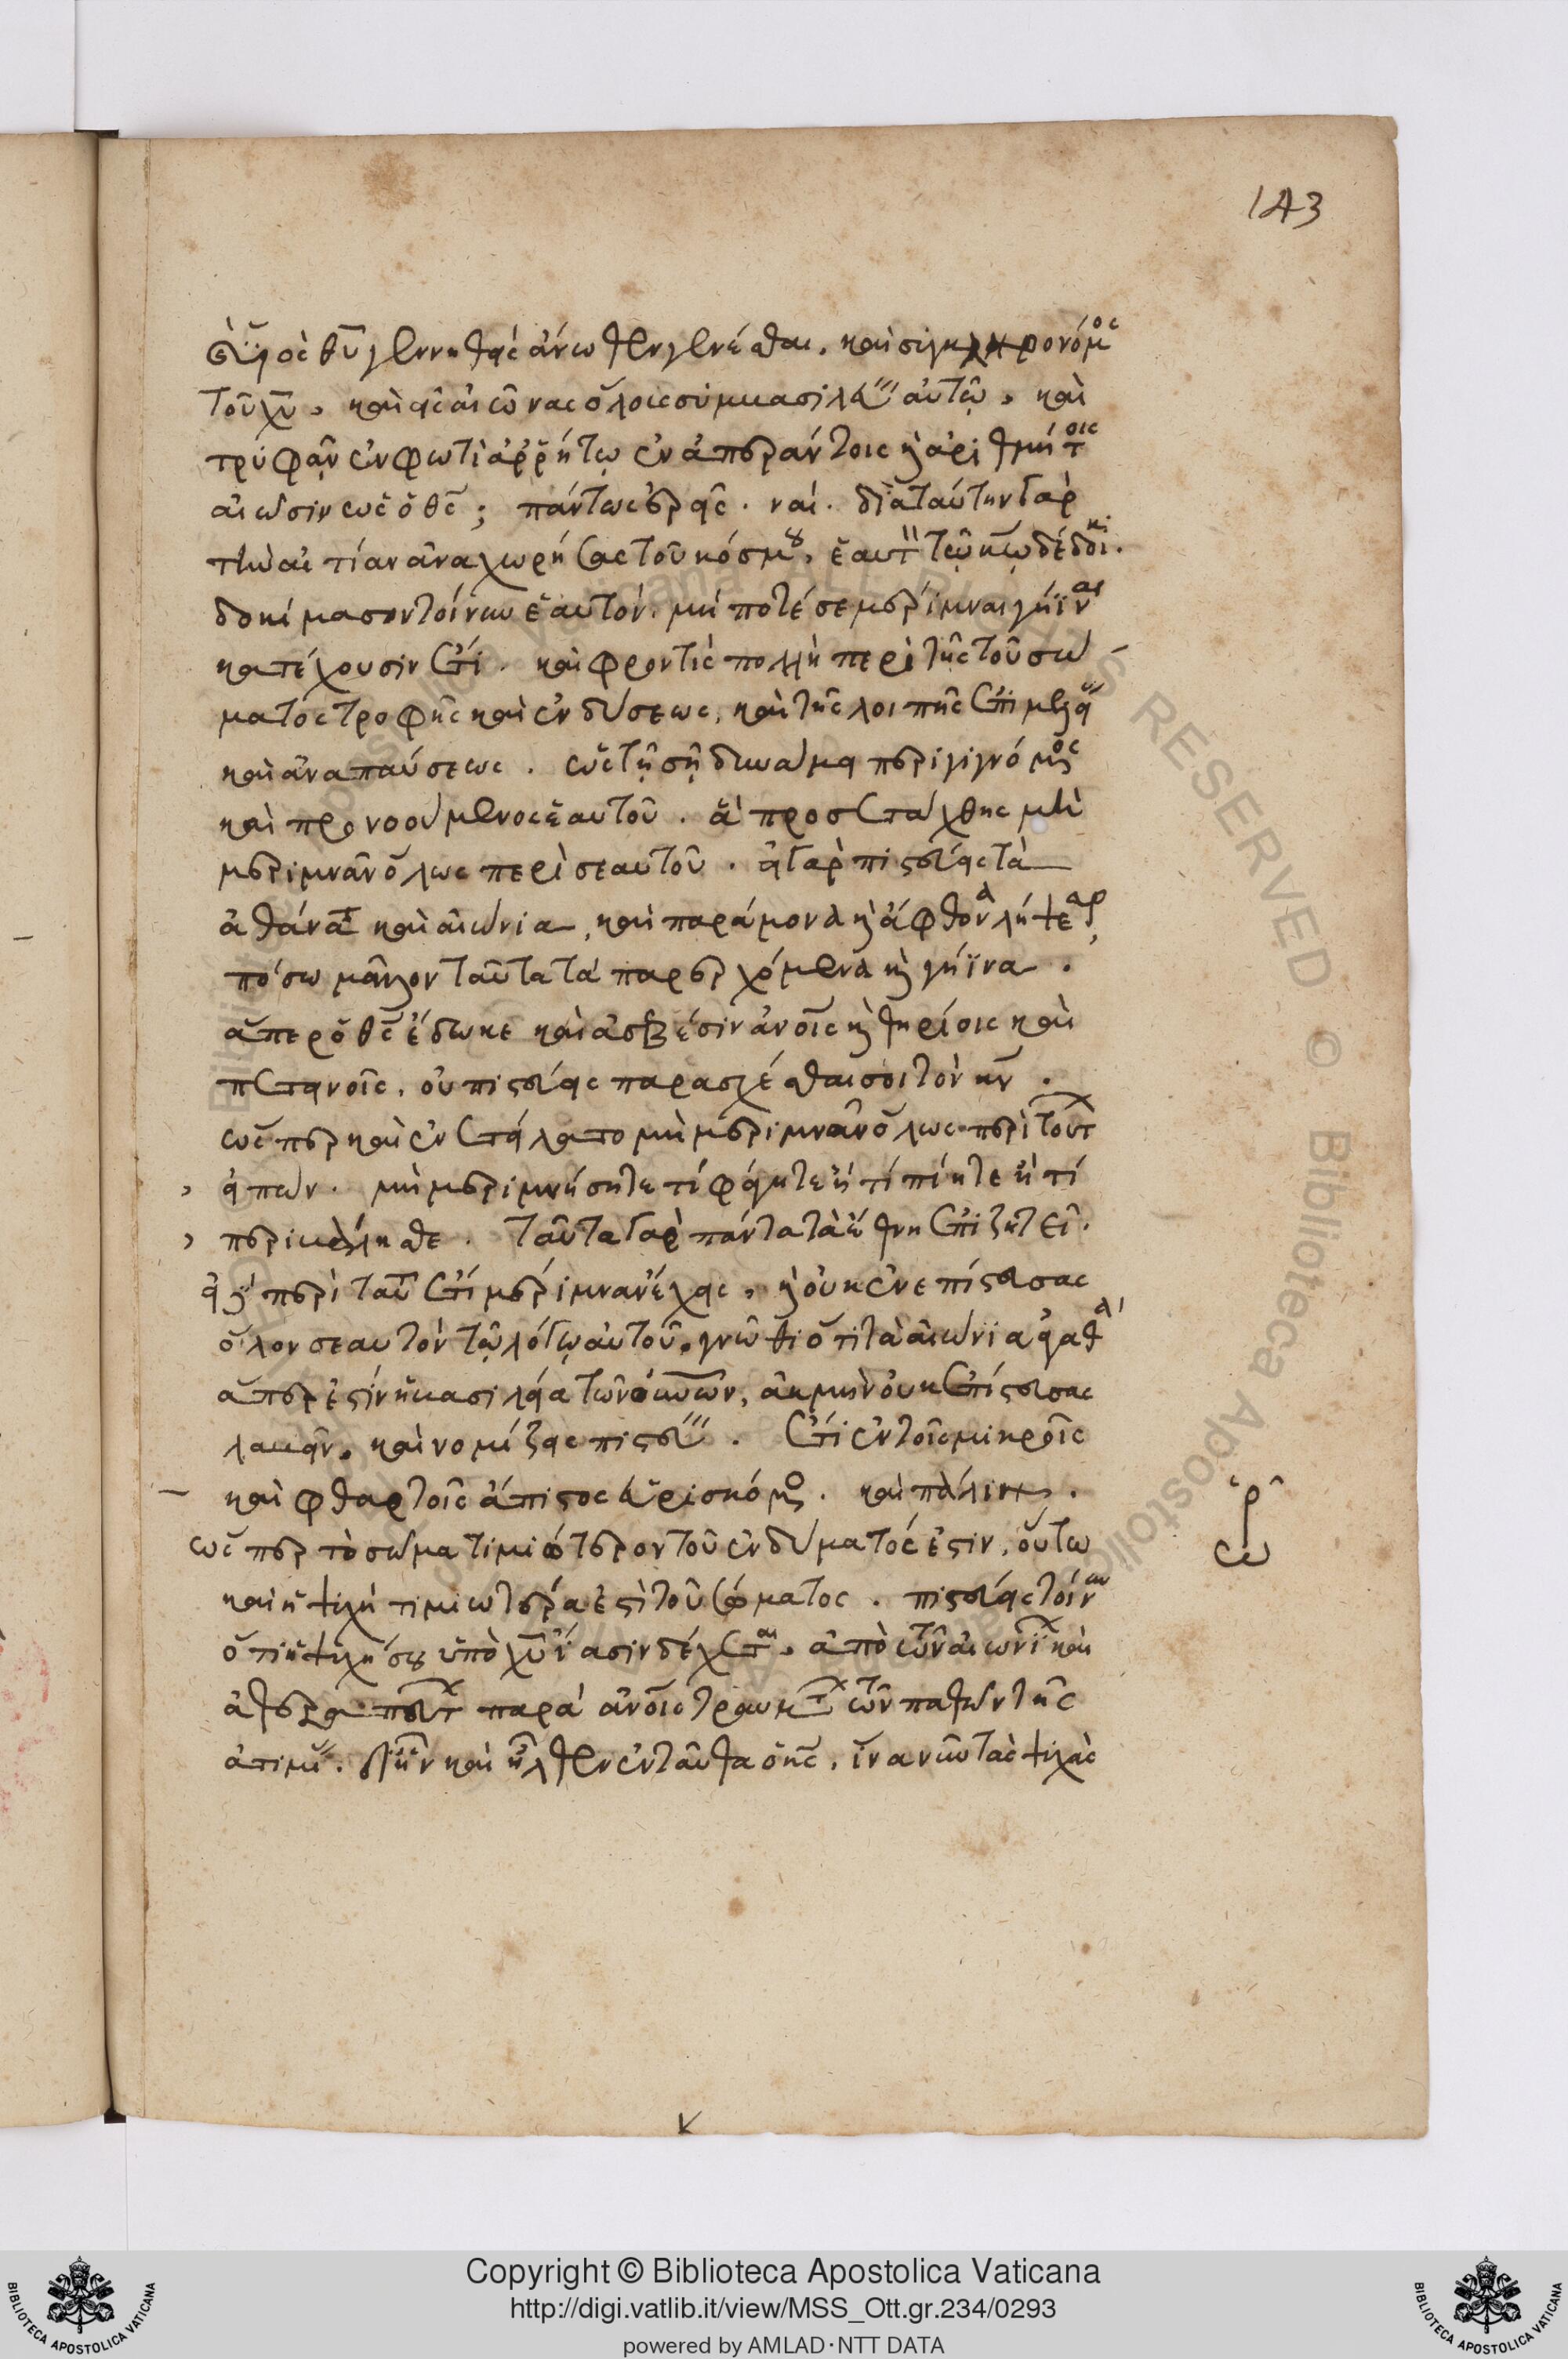 143
υἱὸς θυ γεννηθεὶς ἄνωθεν γενέσθαι, καὶ συγκληρονόμος
τοῦ χυ, καὶ εἰς αἰῶνας ὅλους συμβασιλεύειν αὐτῷ, καὶ
τρυφᾶν ἐν φωτὶ ἀρρήτῳ ἐν ἀπεράντοις καὶ ἀριθμήτοις
αἰῶσιν ὡς ὁ θς; πάντως ἐρεῖς. ναί. διὰ ταύτην γὰρ
τὴν αἰτίαν ἀναχωρήσας τοῦ κόσμου, ἑαυτὸν τῷ κω δέδωκα.
δοκίμασον τοίνυν ἑαυτόν. μήποτέ σε μέριμναι γήϊναι
κατέχουσιν ἔτι. καὶ φροντὶς πολλὴ περὶ τῆς τοῦ σώ
ματος τροφῆς καὶ ἐνδύσεως, καὶ τῆς λοιπῆς ἐπιμελείας
καὶ ἀναπαύσεως. ὡς τῇ σῇ δυνάμει περιγιγνόμενος
καὶ προνοούμενος ἑαυτοῦ. ἃ προσετάχθης μὴ
μεριμνᾶν ὅλως περὶ σεαυτοῦ. εἰ γὰρ πιστεύεις τὰ
ἀθάνατα καὶ αἰώνια, καὶ παράμονα καὶ ἄφθονα λήψεσθαι,
πόσω μᾶλλον ταῦτα τὰ παρερχόμενα καὶ γήϊνα.
ἅπερ ὁ θς ἔδωκε καὶ ἀσεβέσιν ἀνοις καὶ θηρίοις καὶ
πετεινοῖς, οὐ πιστεύεις παρασχέσθαι σοι τὸν κν.
ὥσπερ καὶ ἐνετείλατο μὴ μεριμνᾶν ὅλως περὶ τούτων
εἰπών. μὴ μεριμνήσητε τί φάγητε ἢ τί πίητε ἢ τί
περιβάλησθε. ταῦτα γὰρ πάντα τὰ ἔθνη ἐπιζητεῖ.
εἰ δὲ περὶ τούτων ἔτι μέριμναν ἔχεις, καὶ οὐκ ἐνεπίστευσας
ὅλον σεαυτὸν τῷ λόγῳ αὐτοῦ, γνῶθι ὅτι τὰ αἰώνια ἀγαθά
ἅπερ ἐστὶν ἡ βασιλεία τῶν ουνων, ἀκμὴν οὐκ ἐπίστευσας
λαβεῖν, καὶ νομίζεις πιστεύειν. ἔτι ἐν τοῖς μικροῖς
καὶ φθαρτοῖς ἄπιστος εὑρισκόμενος. καὶ πάλιν.
ὥσπερ τὸ σῶμα τιμιώτερον τοῦ ἐνδύματός ἐστιν, οὕτω
καὶ ἡ ψυχὴ τιμιωτέρα ἐστὶ τοῦ σώματος. πιστεύεις τοίνυν
ὅτι ἡ ψυχή σου ὑπὸ χυ ἴασιν δέχεται, ἀπὸ τῶν αἰωνίων καὶ
ἀθεραπεύτων παρὰ ἀνοις τραυμάτων τῶν παθῶν τῆς
ἀτιμίας. δι' ἣν καὶ ἦλθεν ἐνταῦθα ὁ κς, ἵνα νῦν τὰς ψυχὰς
ὡρ
Copyright © Biblioteca Apostolica Vaticana
http://digi.vatlib.it/view/MSS_Ott.gr.234/0293
powered by AMLAD·NTT DATA
BIBLIOTECA APOSTOLICA VATICANA
BIBLIOTECA APOSTOLICA VATICANA